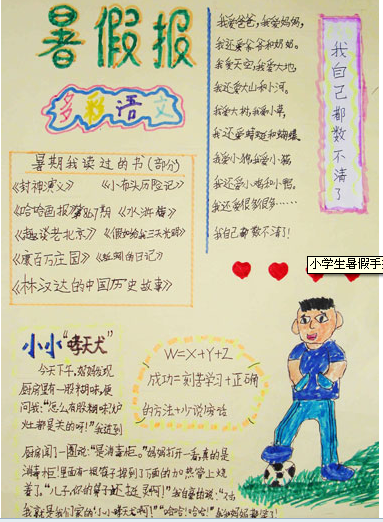 暑假报
多彩语文
暑期我读过的书(部分)
《封神演义》 《小布头历险记》
《哈哈画报》第167期 《水浒传》
《趣谈老北京》 《假如给我三天光明》
《康百万庄园》 《蚯蚓的日记》
《林汉达的中国历史故事》
我爱爸爸,我爱妈妈,
我还爱爷爷和奶奶。
我爱天空,我爱大地,
我还爱大山和小河。
我爱大树,我爱小草,
我还爱蜻蜓和蝴蝶。
我爱小狗,我爱小猫
我还爱小鸡和小鸭。
我还爱很多很多……
我自己都数不清!
我自己都数不清了
小学生暑假手
小小“哮天犬”
今天下午,妈妈发现
厨房里有一股糊味,便
问我:“怎么有股糊味,炉
灶都是关的呀!”我进到
厨房闻了一圈说:“是消毒柜。”妈妈打开一看,真的是
消毒柜!里面有一根筷子掉到了下面的加热管上烧
着了。“儿子,你的鼻子还挺灵啊!”我自豪的说:“对
我就是我们家的‘小小哮天犬’啊!”“哈哈!哈哈!”我和妈妈都笑了!
W=X+Y+Z
成功=刻苦学习+正确
的方法+少说废话